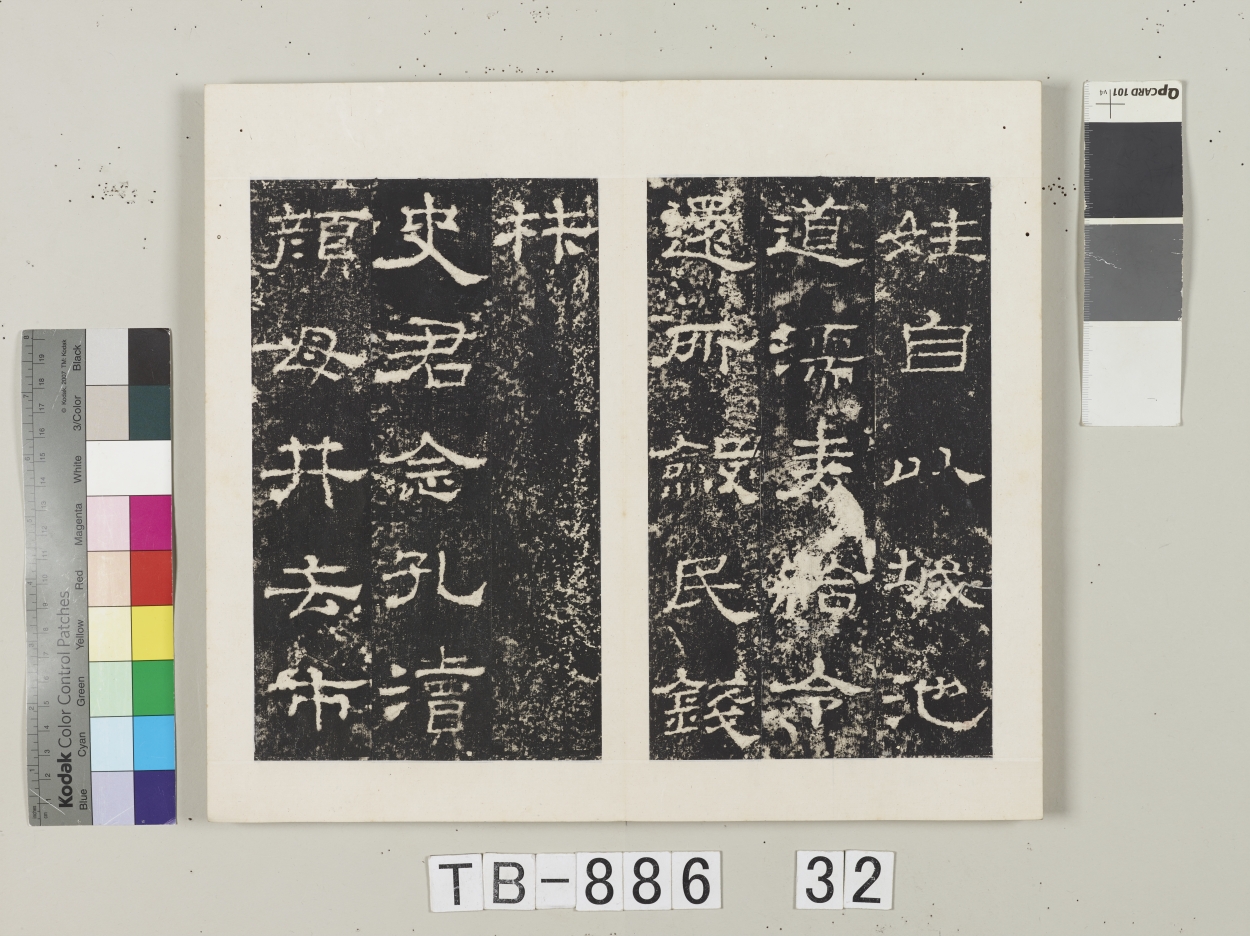 姓自以城池
道濡麥給令
還所斂民錢
材
史君念孔瀆
顏母井去市
QPCARD 101 v4
Kodak Color Control Patches
© Kodak, 2007 TM: Kodak
Blue Cyan Green Yellow Red Magenta White 3/Color Black
TB-886 32